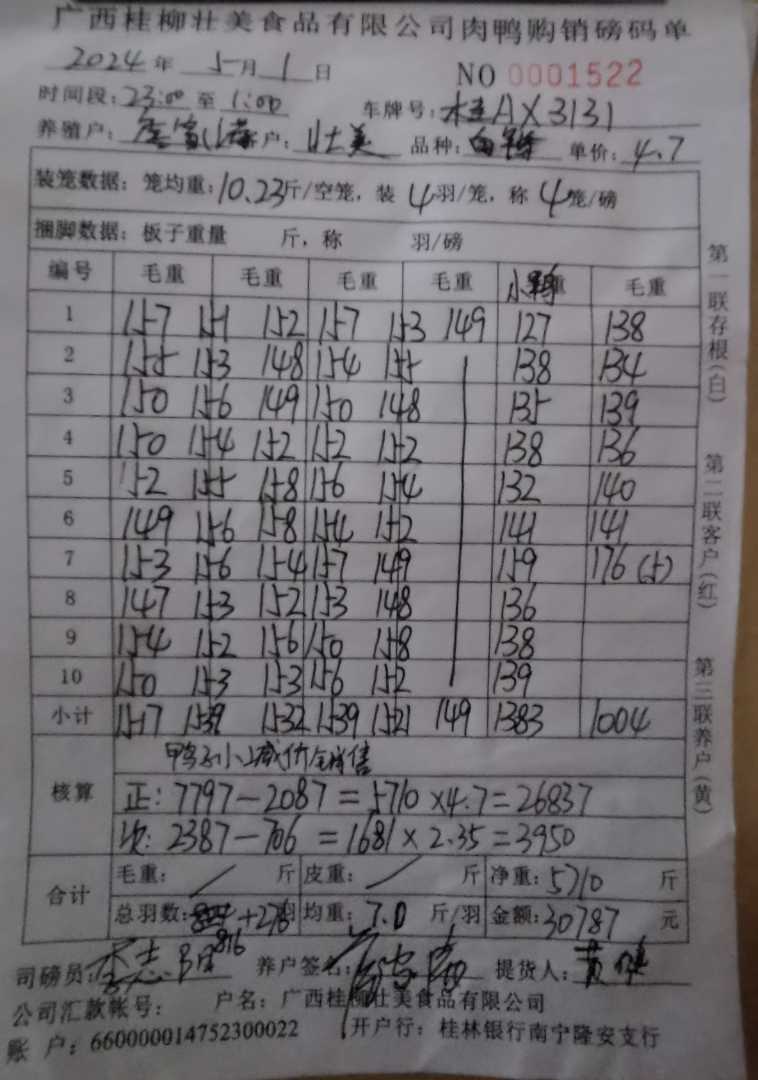 广西桂柳壮美食品有限公司肉鸭购销磅码单
2024 年 5 月 1 日 NO 0001522
时间段: 23:00 至 1:00 车牌号: 桂AX3131
养殖户: 客户: 壮美 品种: 单价: 4.7
装笼数据: 笼均重: 10.23斤/空笼, 装 4 羽/笼, 称 4 笼/磅
捆脚数据: 板子重量 斤, 称 羽/磅
编号 毛重 毛重 毛重 毛重 小鸭 毛重
1 157 151 152 157 153 149 127 138
2 155 153 148 154 155 138 134
3 150 156 149 150 148 135 139
4 150 154 152 152 152 138 136
5 152 155 158 156 154 132 140
6 149 156 158 154 152 141 141
7 153 156 154 157 149 159 176 (5)
8 147 153 152 153 148 136
9 154 152 156 150 158 138
10 150 153 153 156 152 139
小计 1517 1539 1532 1539 1521 149 1383 1004
核算 鸭子小减价销售
正: 7797-2087=5710×4.7=26837
次: 2387-706=1681×2.35=3950
合计 毛重: / 斤 皮重: / 斤 净重: 5710 斤
总羽数: +276羽 均重: 7.0 斤/羽 金额: 30787 元
816
司磅员: 李志 养户签名: 提货人: 黄
公司汇款帐号: 户名: 广西桂柳壮美食品有限公司
账 户: 660000014752300022 开户行: 桂林银行南宁隆安支行
第一联存根(白)
第二联客户(红)
第三联养户(黄)